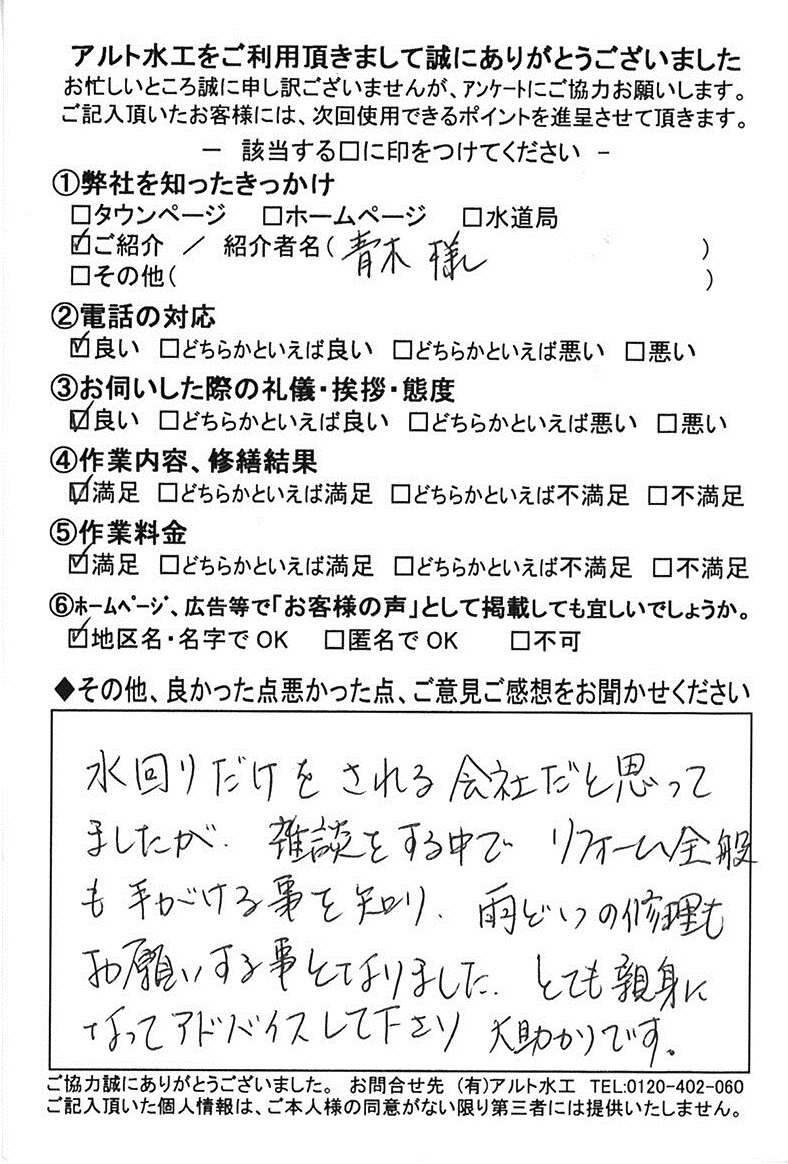 アルト水工をご利用頂きまして誠にありがとうございました
お忙しいところ誠に申し訳ございませんが、アンケートにご協力お願いします。
ご記入頂いたお客様には、次回使用できるポイントを進呈させて頂きます。
－ 該当する□に印をつけてください －
①弊社を知ったきっかけ
□タウンページ □ホームページ □水道局
☑ご紹介 ／ 紹介者名( 青木 様 )
□その他( )
②電話の対応
☑良い □どちらかといえば良い □どちらかといえば悪い □悪い
③お伺いした際の礼儀・挨拶・態度
☑良い □どちらかといえば良い □どちらかといえば悪い □悪い
④作業内容、修繕結果
☑満足 □どちらかといえば満足 □どちらかといえば不満足 □不満足
⑤作業料金
☑満足 □どちらかといえば満足 □どちらかといえば不満足 □不満足
⑥ホームページ、広告等で「お客様の声」として掲載しても宜しいでしょうか。
☑地区名・名字でOK □匿名でOK □不可
◆その他、良かった点悪かった点、ご意見ご感想をお聞かせください
水回りだけをされる会社だと思って
ましたが、雑談をする中で リフォーム全般
も手がける事を知り、雨どいの修理も
お願いする事となりました。とても親身に
なってアドバイスして下さり 大助かりです。
ご協力誠にありがとうございました。 お問合せ先 (有)アルト水工 TEL:0120-402-060
ご記入頂いた個人情報は、ご本人様の同意がない限り第三者には提供いたしません。